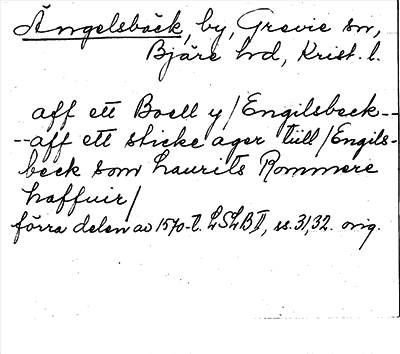 Ängelsbäck, by, Grevie sn,
Bjäre hd, Krist. l.
aff ett Boell y/Engilsbeck--
--aff ett sticke ager till/Engils-
beck som Laurits Rommere
haffuir/
förra delen av 1570-t. LSLB II, ss. 31, 32. orig.